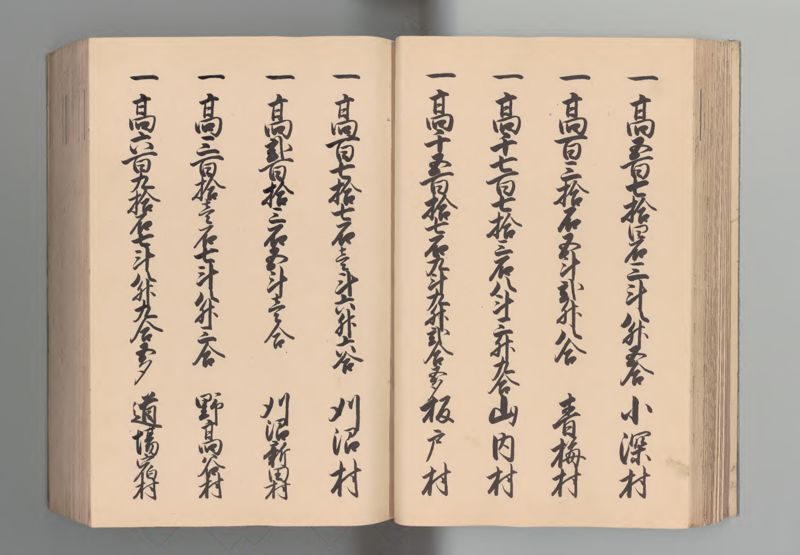 一 高五百七拾四石三斗八升五合 小深村
一 高百三拾石五斗弐升八合 青梅村
一 高千七百七拾三石八斗三升九合 山内村
一 高千五百拾七石九斗九升弐合五夕 板戸村
一 高百七拾七石壱斗六升六合 刈沼村
一 高弐百拾三石五斗壱合 刈沼新田村
一 高三百拾壱石七斗八升三合 野高谷村
一 高六百九拾石七斗八升九合五夕 道場宿村